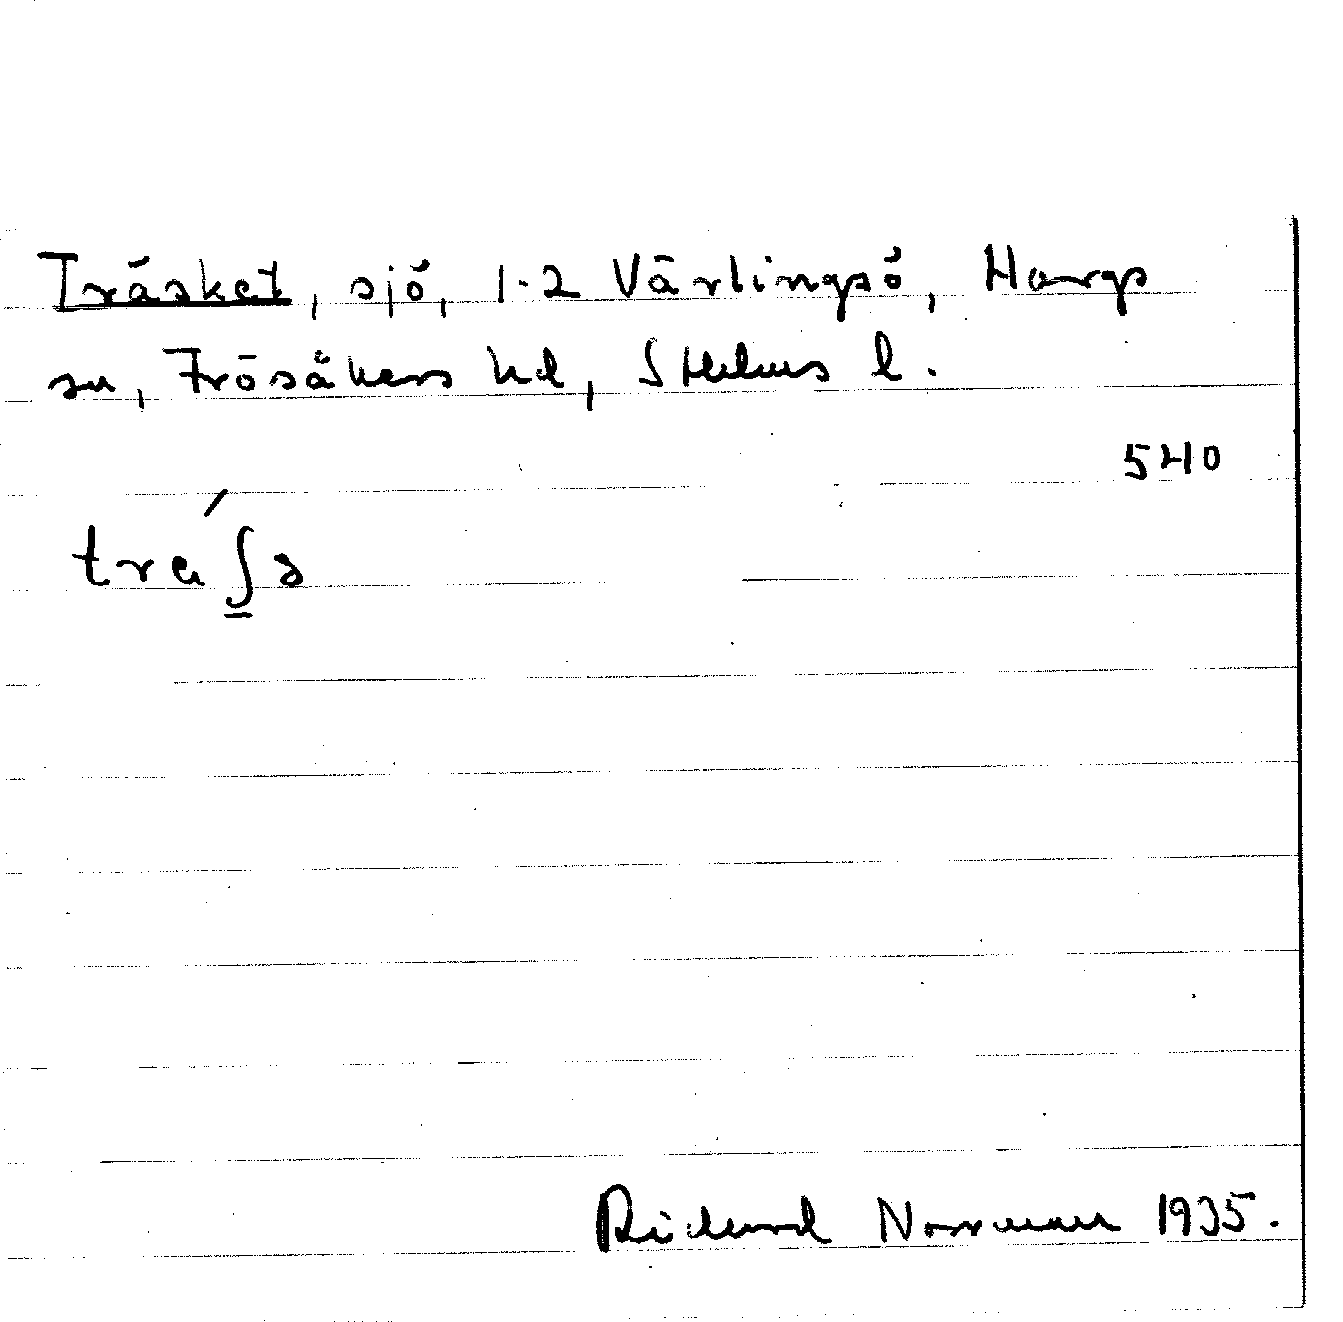 Träsket, sjö, 1-2 Värlingsö, Hargs
sn, Frösåkers hd, Sthlms l.
540
tra ́ʃs
Richard Norrman 1935.